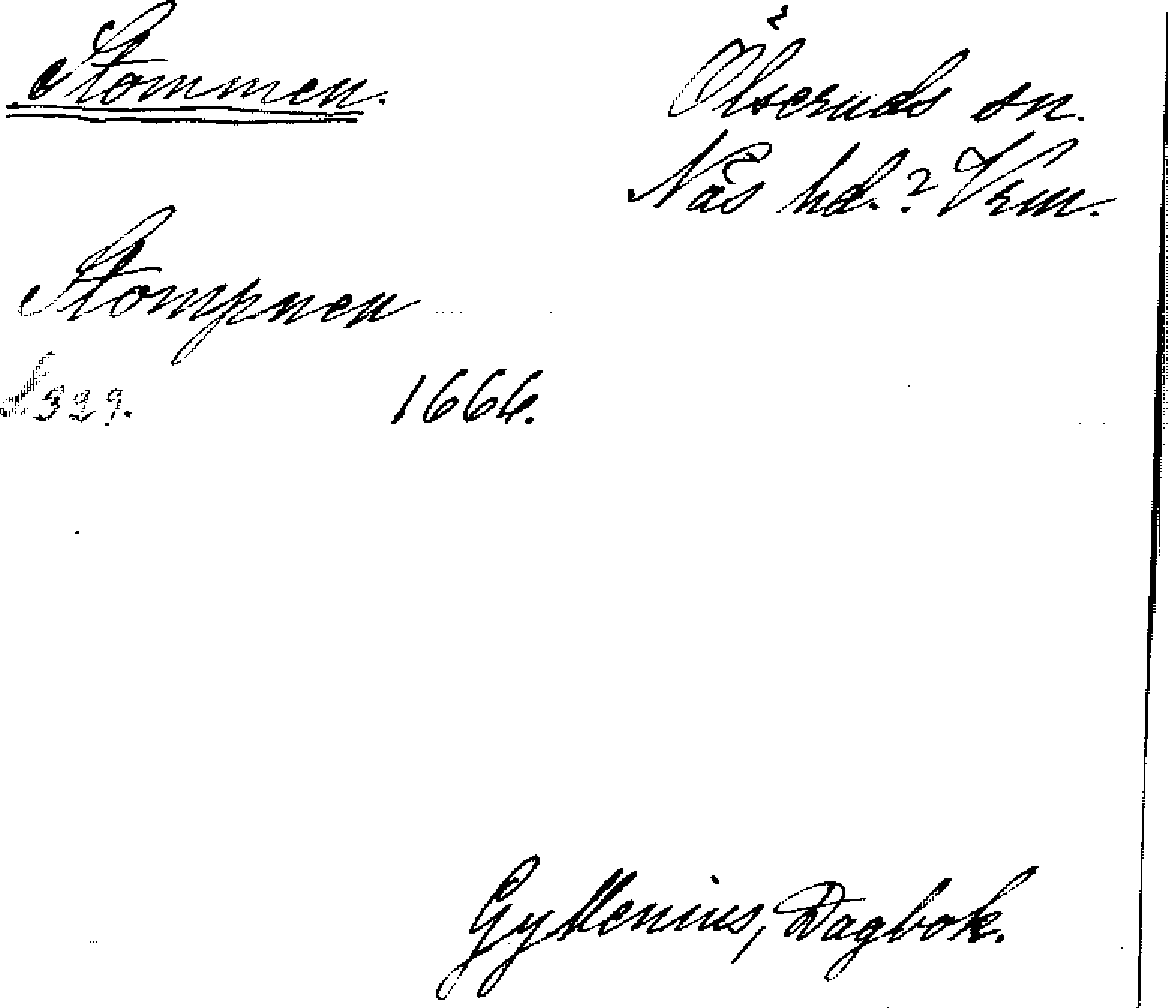 Stommen.
Ölseruds sn.
Näs hd.? Vrm.
Stompnen
S. 329. 1666.
Gyllenius, Dagbok.